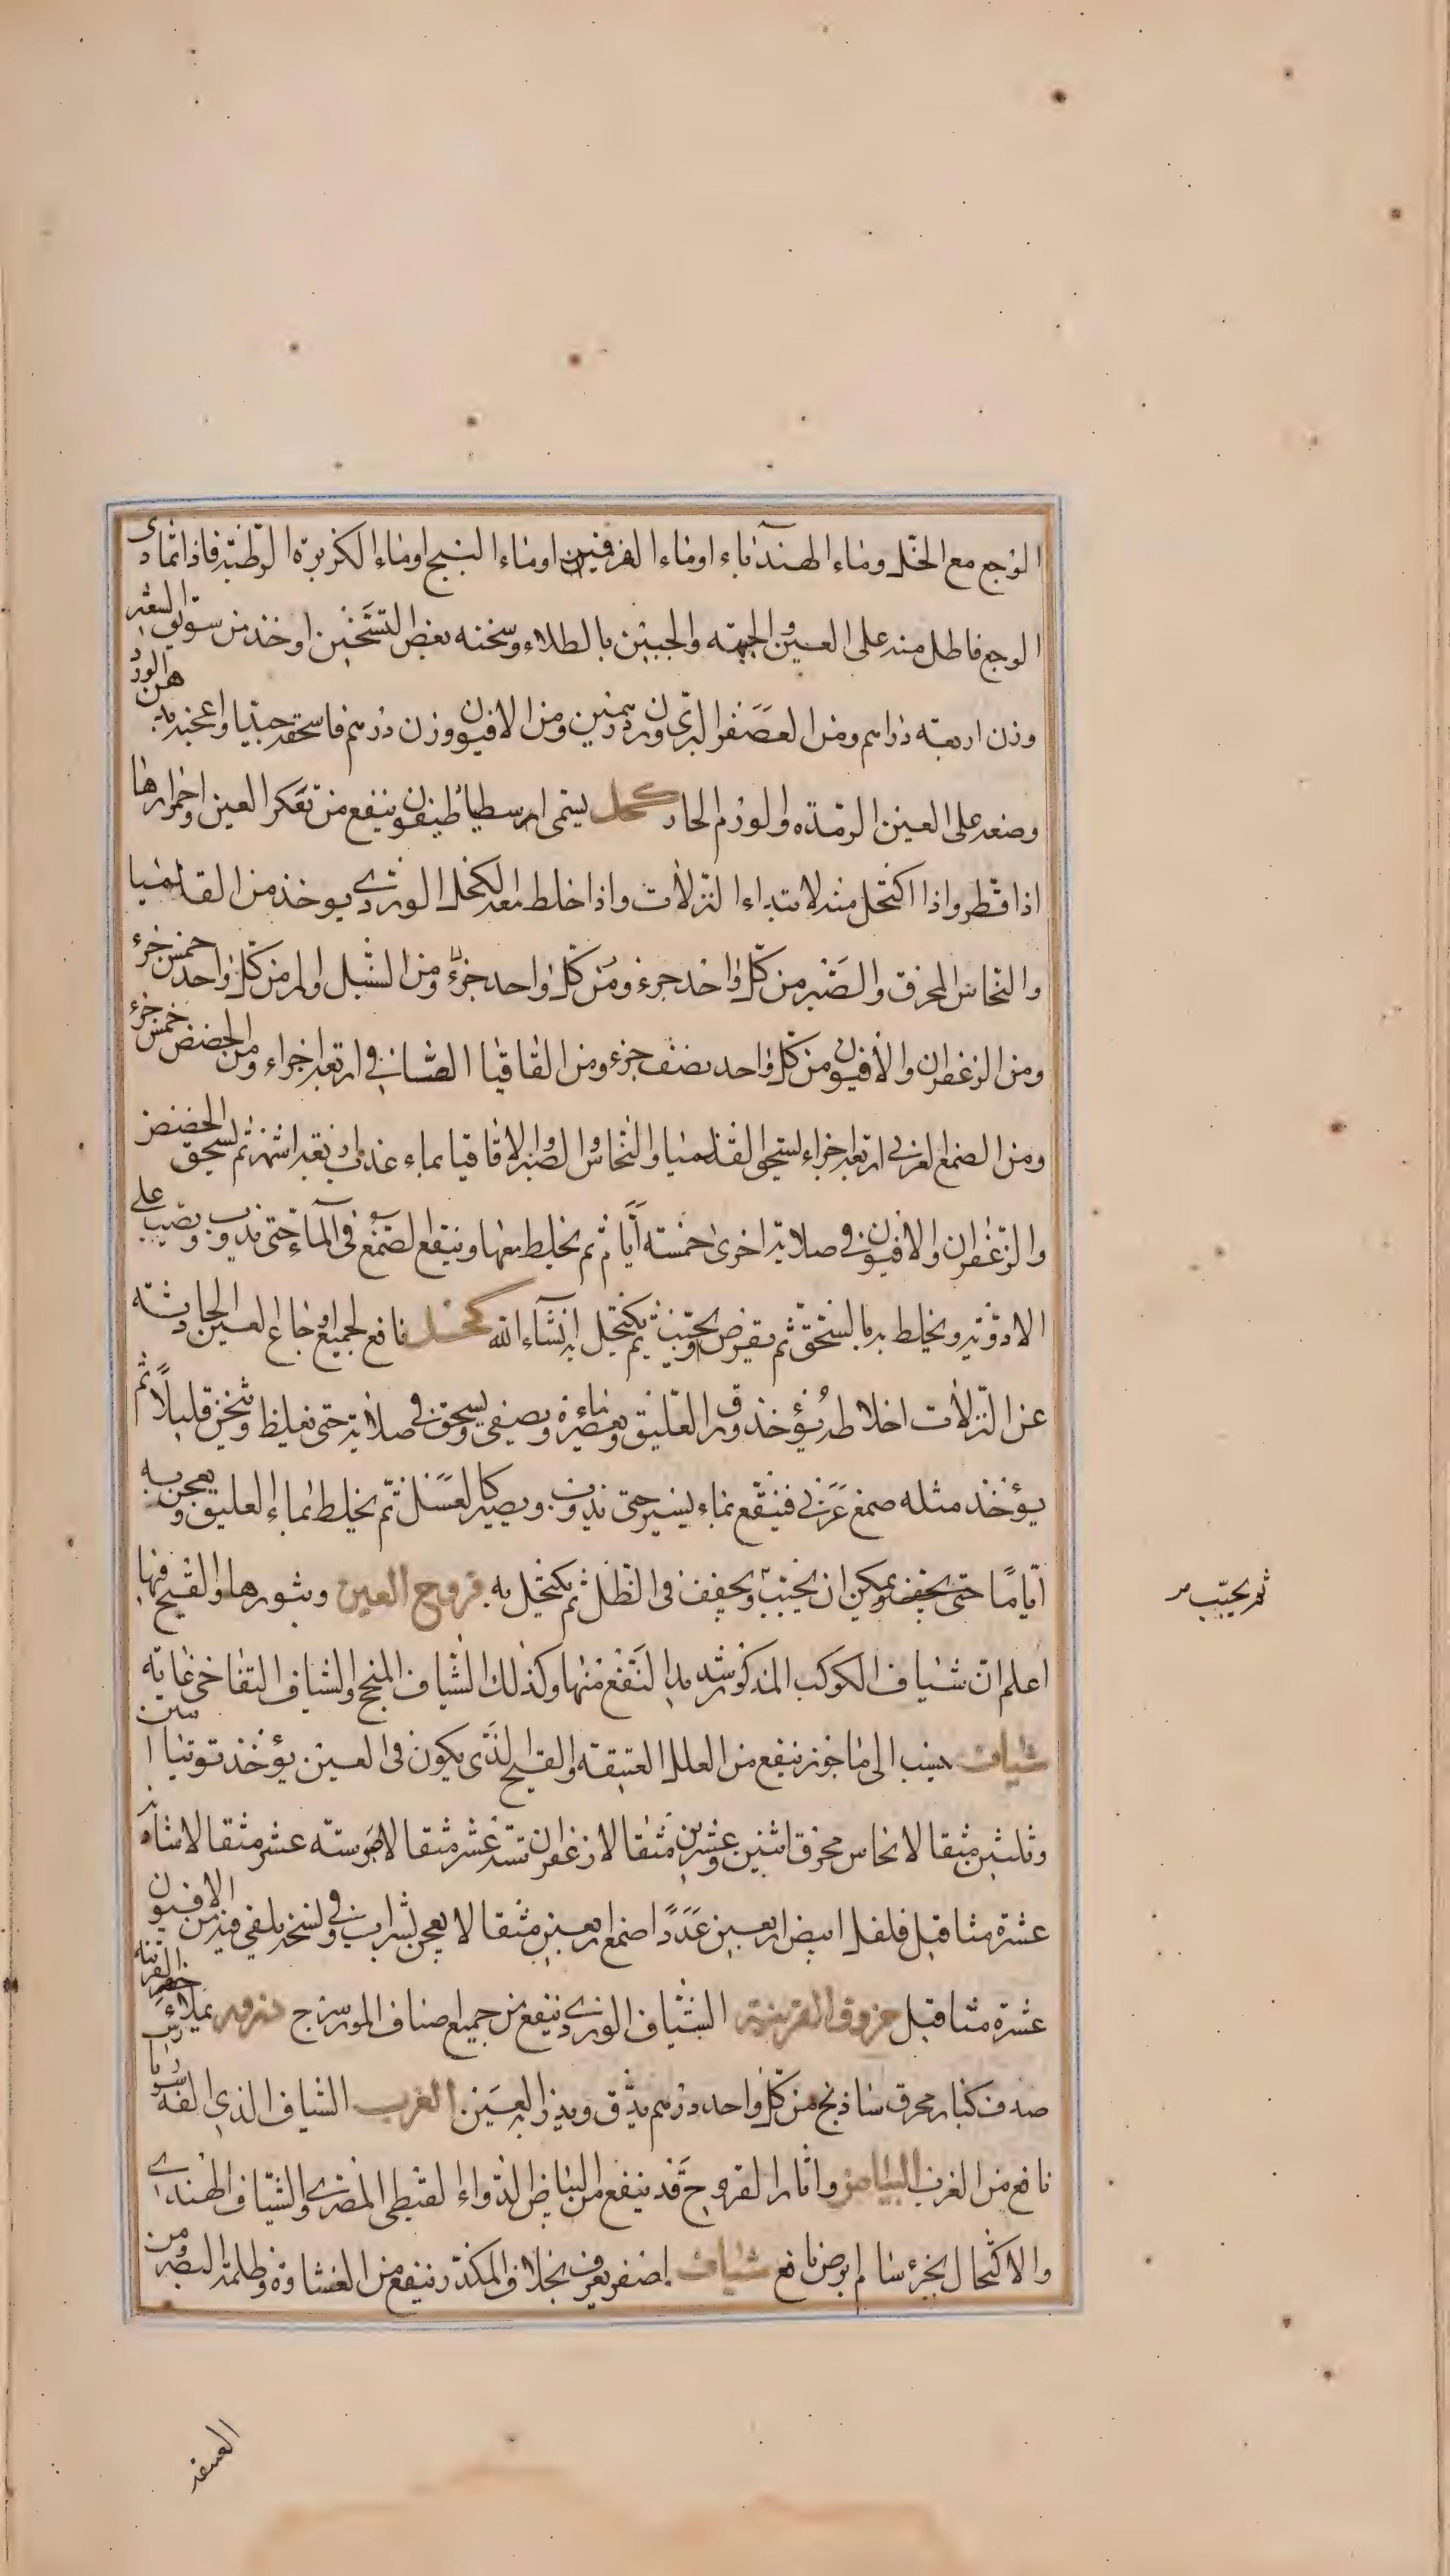 الوجع مع الخل وماء الهندباء اوماء الفرفين اوماء البنج اوماء الكزبرة الرطبة فاذا تمادى
الوجع فاطل منه على العين والجبهة والجبين بالطلاء وسخنه بعض التسخين اوخذ من سويق الشعير
وزن اربعة دراهم ومن العصفر البرى وزن درهمين ومن الافيون وزن درهم فاسحقه جيدا واعجنه بدهن الورد
وضعه على العين الرمدة والورم الحار كحل يسمى ارسطياطيفون ينفع من تعكر العين واحمرارها
اذا قطر واذا اكتحل منه لابتداء النزلات واذا خلط معه الكحل الوردى يوخذ من القلميا
والنحاس المحرق والصبر من كل واحد جزء ومن كل واحد جزؤ ومن السنبل والمر من كل واحد خمس جزء
ومن الزعفران والافيون من كل واحد نصف جزء ومن القاقيا الصافى اربعة اجزاء ومن الحضض خمس جزء
ومن الصمغ العربى اربعة اجزاء يسحق القلميا والنحاس والصبر والاقاقيا بماء عذب اربعة اشهر ثم يسحق الحضض
والزعفران والافيون فى صلاية اخرى خمسة أيام ثم يخلط معها وينقع الصمغ فى الماء حتى يذوب ويصب على
الادوية ويخلط به بالسحق ثم يقرص ويحبب ثم يكتحل به انشاء الله كحل نافع لجميع اوجاع العين الحادثة
عن النزلات اخلاطه يؤخذ ورق العليق وماءه ويعصر ويصفى ويسحق فى صلاية حتى يغلظ ويثخن قليلاً ثم
يؤخذ مثله صمغ عربى فينقع بماء يسير حتى يذوب ويصير كالعسل ثم يخلط بماء العليق ويعجن به
أياما حتى يجفف ويمكن ان يحبب ويجفف فى الظل ثم يكتحل به قروح العين وبثورها والقيح فيها
ثم يحبب
اعلم ان شياف الكوكب المذكور شديد النفع منها وكذلك الشياف المنجح والشياف التفاخى غاية
شياف ينسب الى ماجور ينفع من العلل العتيقة والقيح الذى يكون فى العين يؤخذ توتيا ستين
وثلثين مثقالا نحاس محرق اثنين وعشرين مثقالا زعفران ستة عشر مثقالا مر ستة عشر مثقالا شاذنه
عشرة مثاقيل فلفل ابيض اربعين عددا صمغ اربعين مثقالا يعجن بشراب وفى نسخة يلقى فيه من الافيون
عشرة مثاقيل خروق القرنية الشياف الوردى ينفع من جميع اصناف المورسرج يملاء حفر القرنية
صدف كبار محرق شاذنج من كل واحد درهم يدق ويذر به العين الغرب الشياف الذى الفه
نافع من الغرب البياض واثار القروح قد ينفع من البياض الدواء القبطى المصرى والشياف الهندى
والاكتحال بخرؤ سام ابرص نافع شياف اصفر يعرف بخلاف المكدر ينفع من الغشاوة وظلمة البصر ومن